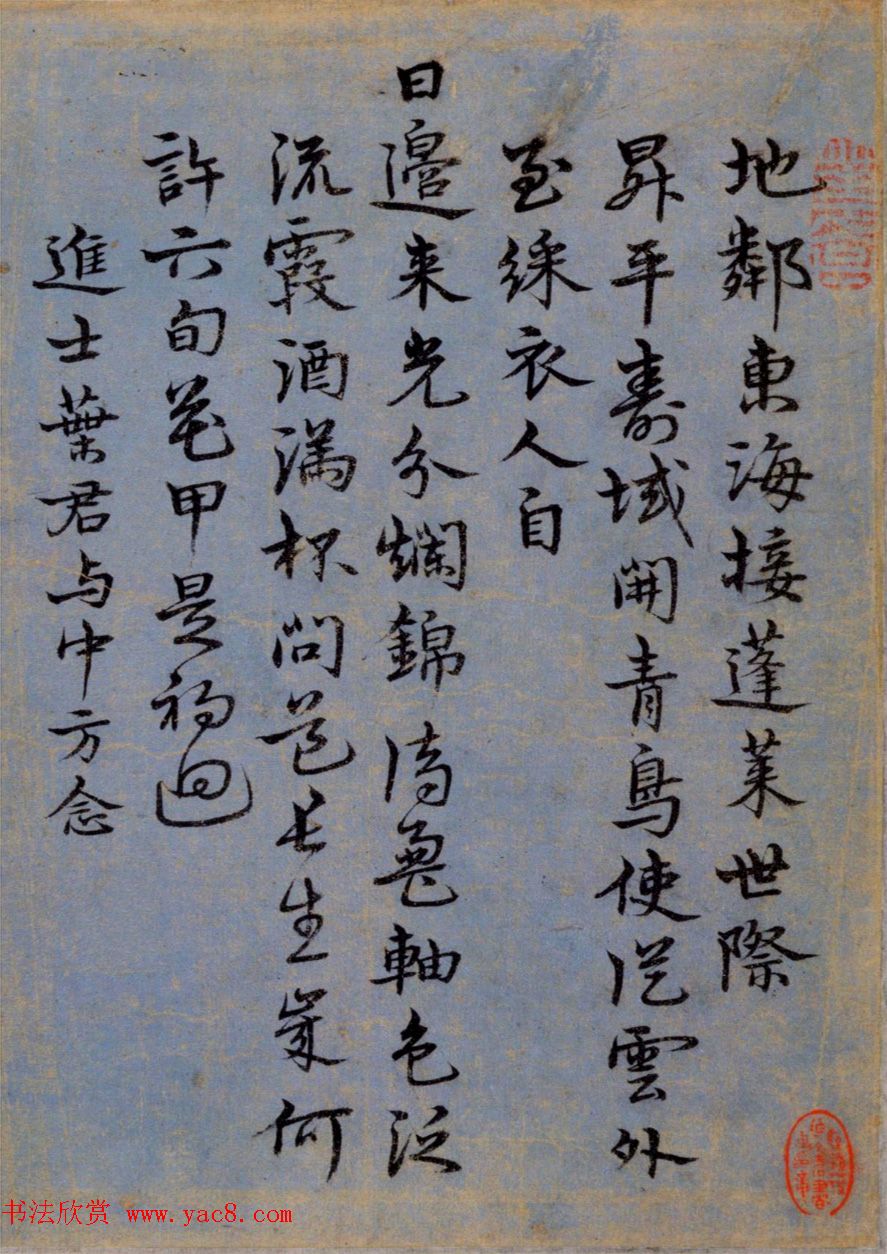 地鄰東海接蓬萊世際
昇平壽域開青鳥使從雲外
至綵衣人自
日邊来光分爛錦漬鸞軸色泛
流霞酒滿杯問若长生案何
許六旬花甲是初迴
進士葉君与中方念
书法欣赏 www.yac8.com